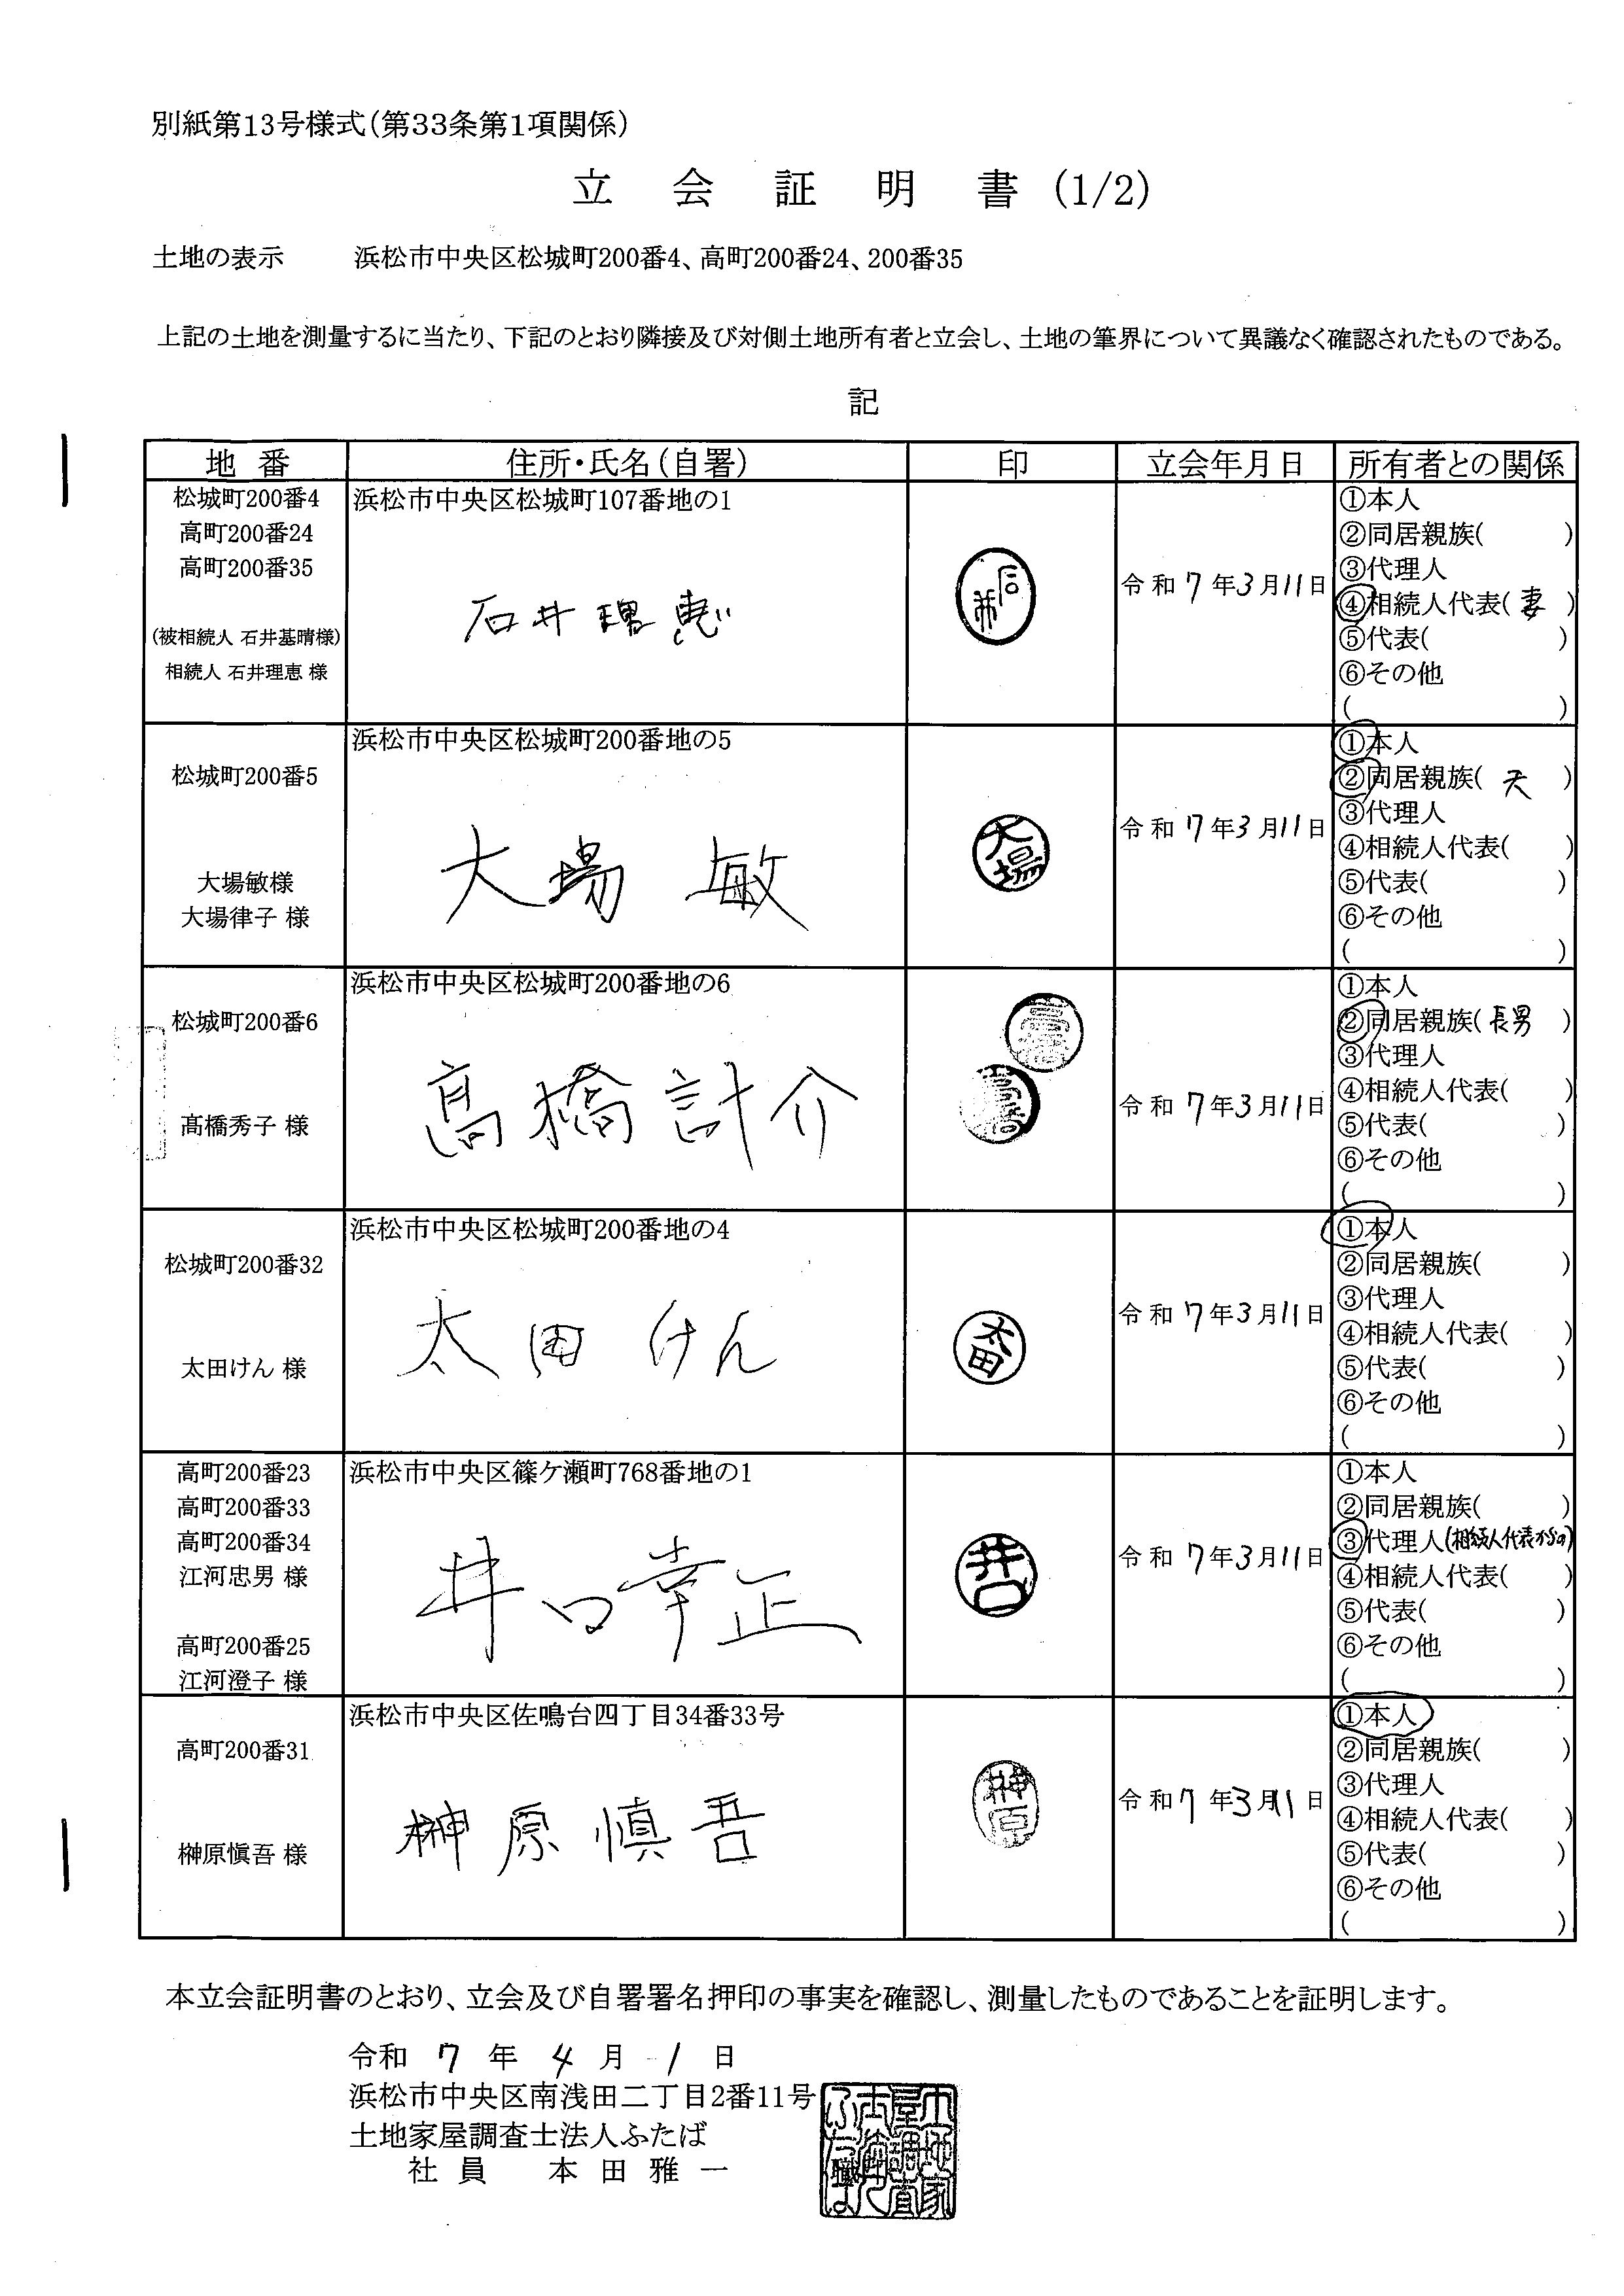 別紙第13号様式(第33条第1項関係)
立会証明書(1/2)
土地の表示 浜松市中央区松城町200番4、高町200番24、200番35
上記の土地を測量するに当たり、下記のとおり隣接及び対側土地所有者と立会し、土地の筆界について異議なく確認されたものである。
記
地番 住所・氏名(自署) 印 立会年月日 所有者との関係
松城町200番4
高町200番24
高町200番35
(被相続人 石井基晴様)
相続人 石井理恵 様
浜松市中央区松城町107番地の1
石井理恵
石井
令和7年3月11日
①本人
②同居親族( )
③代理人
④相続人代表(妻)
⑤代表( )
⑥その他
( )
松城町200番5
大場敏様
大場律子 様
浜松市中央区松城町200番地の5
大場 敏
大場
令和7年3月11日
①本人
②同居親族(夫)
③代理人
④相続人代表( )
⑤代表( )
⑥その他
( )
松城町200番6
髙橋秀子 様
浜松市中央区松城町200番地の6
髙橋計介
髙橋
髙橋
令和7年3月11日
①本人
②同居親族(長男)
③代理人
④相続人代表( )
⑤代表( )
⑥その他
( )
松城町200番32
太田けん 様
浜松市中央区松城町200番地の4
太田けん
太田
令和7年3月11日
①本人
②同居親族( )
③代理人
④相続人代表( )
⑤代表( )
⑥その他
( )
高町200番23
高町200番33
高町200番34
江河忠男 様
高町200番25
江河澄子 様
浜松市中央区篠ケ瀬町768番地の1
井口幸正
井口
令和7年3月11日
①本人
②同居親族( )
③代理人(相続人代表からの)
④相続人代表( )
⑤代表( )
⑥その他
( )
高町200番31
榊原愼吾 様
浜松市中央区佐鳴台四丁目34番33号
榊原慎吾
榊原
令和7年3月11日
①本人
②同居親族( )
③代理人
④相続人代表( )
⑤代表( )
⑥その他
( )
本立会証明書のとおり、立会及び自署署名押印の事実を確認し、測量したものであることを証明します。
令和 7 年 4 月 1 日
浜松市中央区南浅田二丁目2番11号
土地家屋調査士法人ふたば
社員 本田雅一